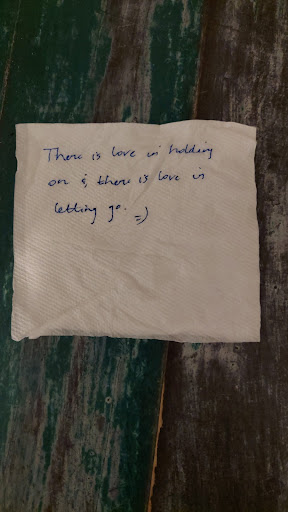 There is love in holding
on & there is love in
letting go. =)